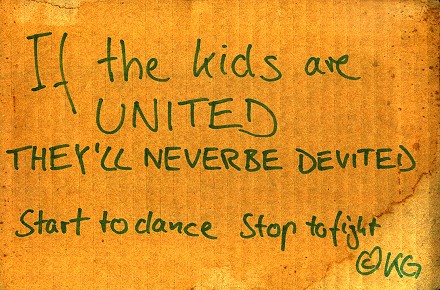 If the kids are
UNITED
THEY'LL NEVERBE DEVITED
Start to dance Stop to fight
©KG